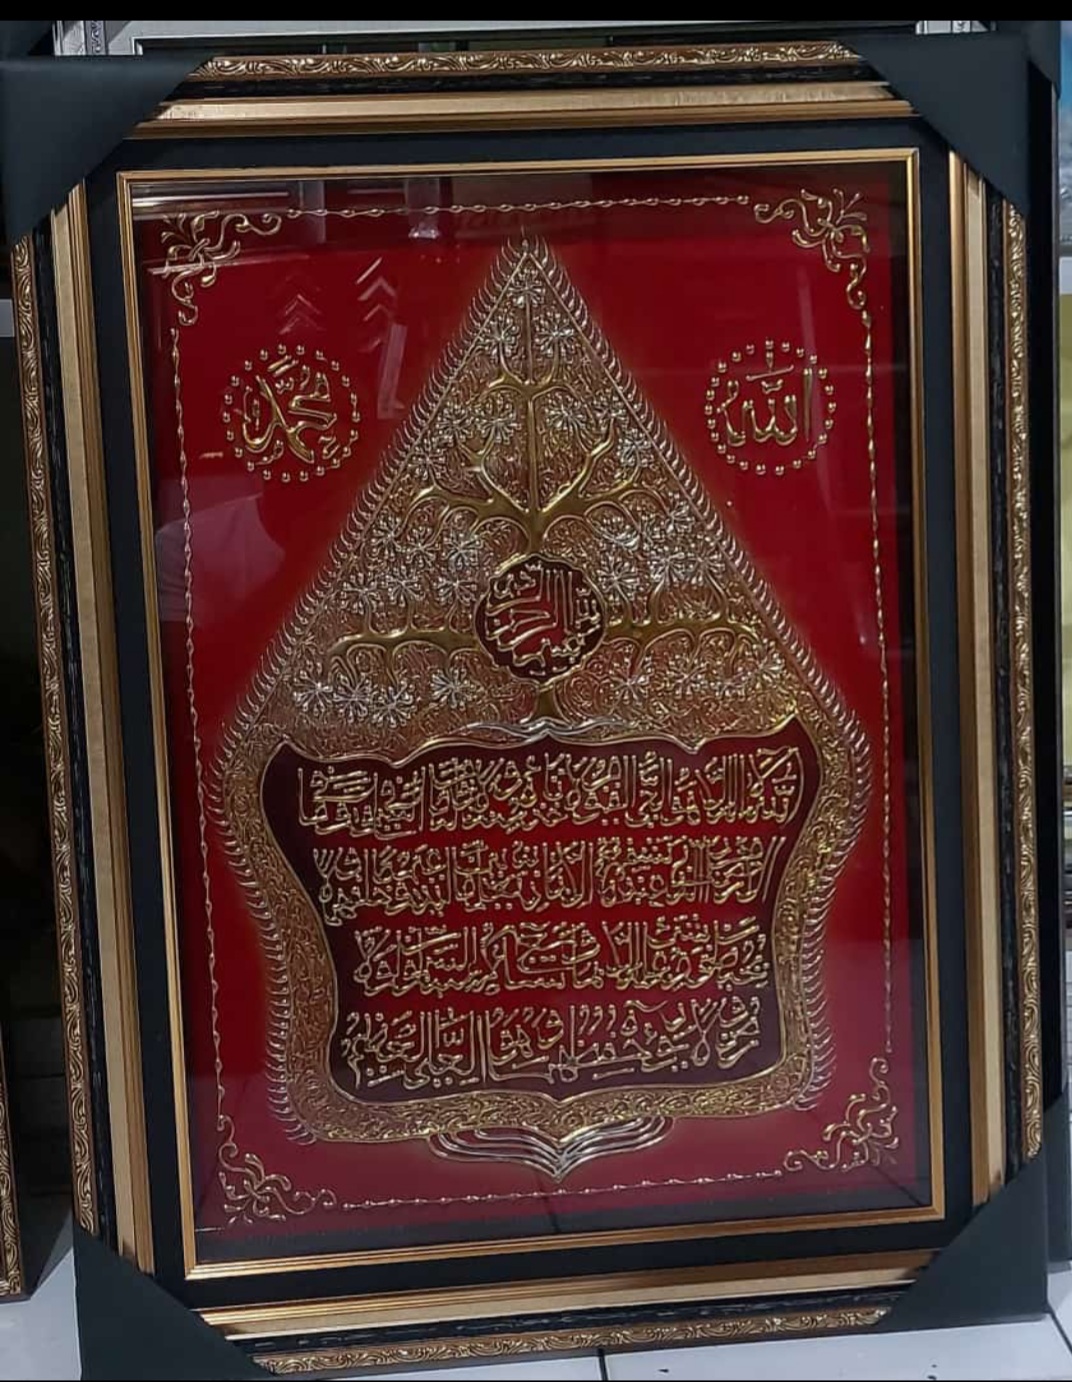 الله
محمد
بسم الله الرحمن الرحيم
الله لا إله إلا هو الحي القيوم لا تأخذه سنة ولا نوم له ما في السموات وما
في الأرض من ذا الذي يشفع عنده إلا بإذنه يعلم ما بين أيديهم وما خلفهم ولا
يحيطون بشيء من علمه إلا بما شاء وسع كرسيه السموات والأرض ولا
يؤده حفظهما وهو العلي العظيم